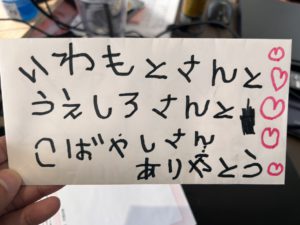 いわもとさんと
うえしろさんと
こばやしさん
ありがとう